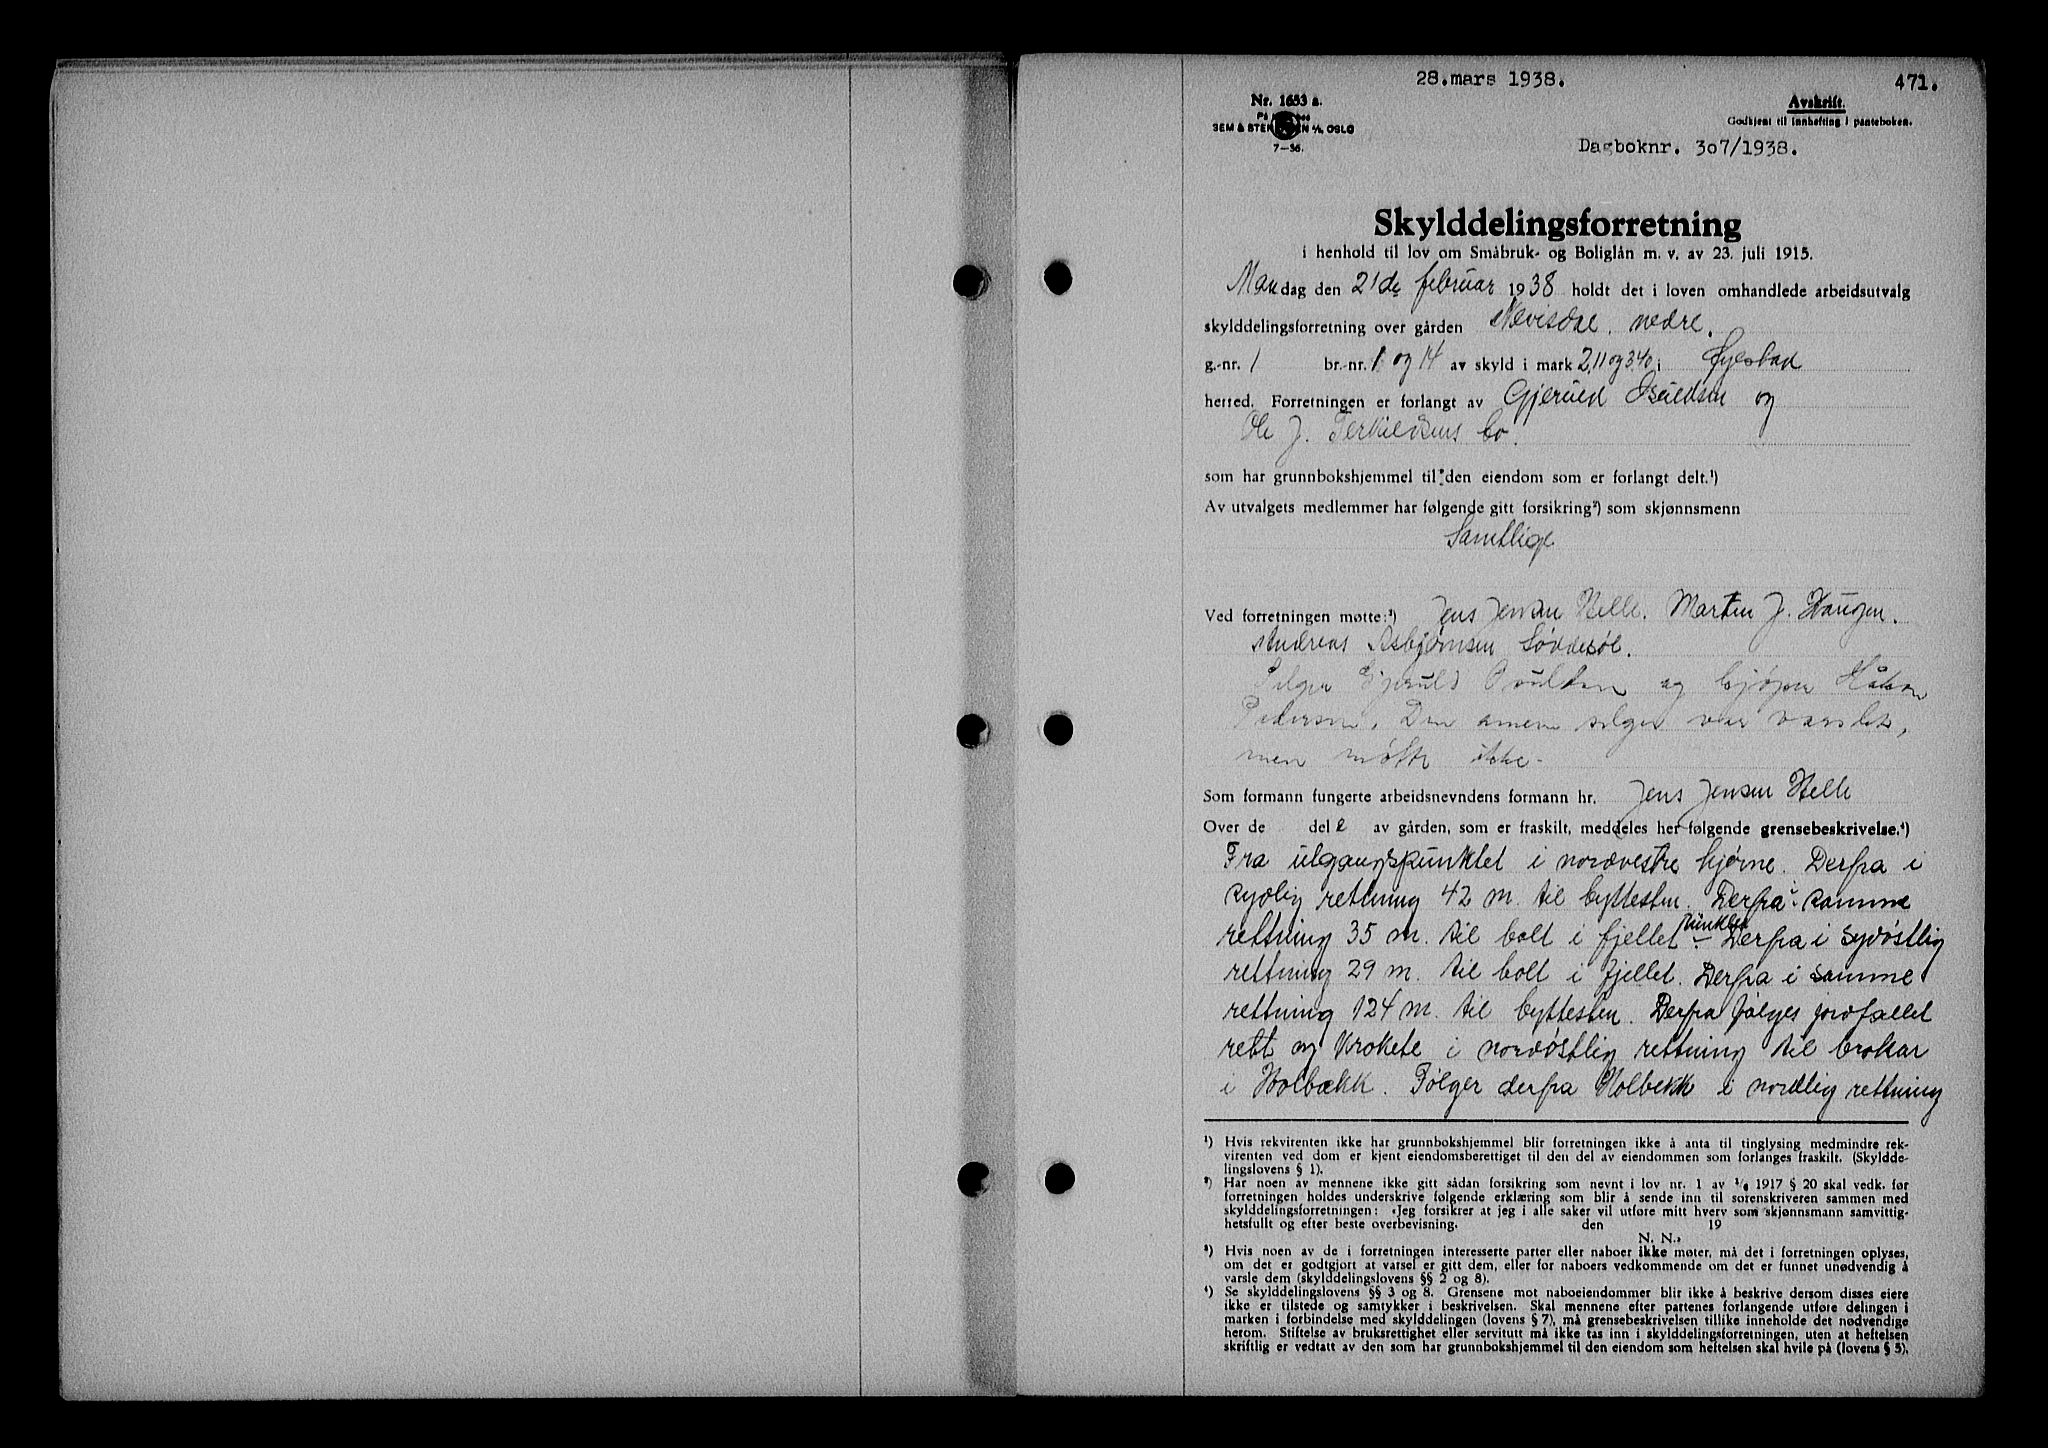 28.mars 1938.
471.
Nr. 1653 a.
Avskrift.
Godkjent til innhefting i panteboken.
SEM & STEN A/S OSLO
7—36.
Dagboknr. 307/1938.
Skylddelingsforretning
i henhold til lov om Småbruk- og Boliglån m. v. av 23. juli 1915.
Mandag den 21de februar 1938 holdt det i loven omhandlede arbeidsutvalg
skylddelingsforretning over gården Nævisdal nedre.
g.-nr. 1 br.-nr. 1 og 14 av skyld i mark 2,11 og 3,40 i Øyestad
herred. Forretningen er forlangt av Gjeruld Ouldsen og
Ole J. Terkildsens bo.
som har grunnbokshjemmel til den eiendom som er forlangt delt.¹)
Av utvalgets medlemmer har følgende gitt forsikring²) som skjønnsmenn
Samtlige
Ved forretningen møtte:³) Jens Jensen Helle. Marten J. Haugen.
Andreas Asbjørnsen Løvdesøl.
Selger Gjeruld Ouldsen og kjøper Håkon
Pedersen. Den annen selger var varslet,
men møtte ikke.
Som formann fungerte arbeidsnevndens formann hr. Jens Jensen Helle
Over de del e av gården, som er fraskilt, meddeles her følgende grensebeskrivelse.⁴)
Fra utgangspunktet i nordvestre hjørne. Derfra i
sydlig rettning 42 m. til byttesten. Derfra i samme
rettning 35 m. til bolt i fjellet punktet. Derfra i sydøstlig
rettning 29 m. til bolt i fjellet. Derfra i samme
rettning 124 m. til byttesten. Derfra følges jordfallet
rett og krokete i nordøstlig rettning til brokar
i Holbækk. Følger derfra Holbekk i nordlig rettning
¹) Hvis rekvirenten ikke har grunnbokshjemmel blir forretningen ikke å anta til tinglysing medmindre rek-
virenten ved dom er kjent eiendomsberettiget til den del av eiendommen som forlanges fraskilt. (Skyldde-
lingslovens § 1).
²) Har noen av mennene ikke gitt sådan forsikring som nevnt i lov nr. 1 av 1/6 1917 § 20 skal vedk. før
forretningen holdes underskrive følgende erklæring som blir å sende inn til sorenskriveren sammen med
skylddelingsforretningen: «Jeg forsikrer at jeg i alle saker vil utføre mitt hverv som skjønnsmann samvittig-
hetsfullt og efter beste overbevisning. den 19
N. N.»
³) Hvis noen av de i forretningen interesserte parter eller naboer ikke møter, må det i forretningen oplyses,
om det er godtgjort at varsel er gitt dem, eller for naboers vedkommende om det er funnet unødvendig å
varsle dem (skylddelingslovens §§ 2 og 8).
⁴) Se skylddelingslovens §§ 3 og 8. Grensene mot naboeiendommer blir ikke å beskrive dersom disses eiere
ikke er tilstede og samtykker i beskrivelsen. Skal mennene efter partenes forlangende utføre delingen i
marken i forbindelse med skylddelingen (lovens § 7), må grensebeskrivelsen tillike inneholde det nødvendige
herom. Stiftelse av bruksrettighet eller servitutt må ikke tas inn i skylddelingsforretningen, uten at heftelsen
skriftlig er vedtatt av den som har grunnbokshjemmel til den eiendom som heftelsen skal hvile på (lovens § 5).